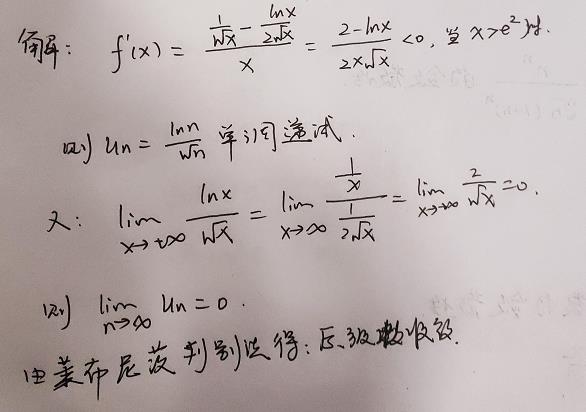 解: f'(x) = (1/√x - lnx/2√x)/x = (2-lnx)/(2x√x) <0, 当 x>e² 时.
则 Un = lnn/√n 单调递减.
又: lim x→+∞ lnx/√x = lim x→∞ (1/x)/(1/2√x) = lim x→+∞ 2/√x =0.
则 lim n→∞ Un = 0.
由莱布尼茨判别法得: 原级数收敛.